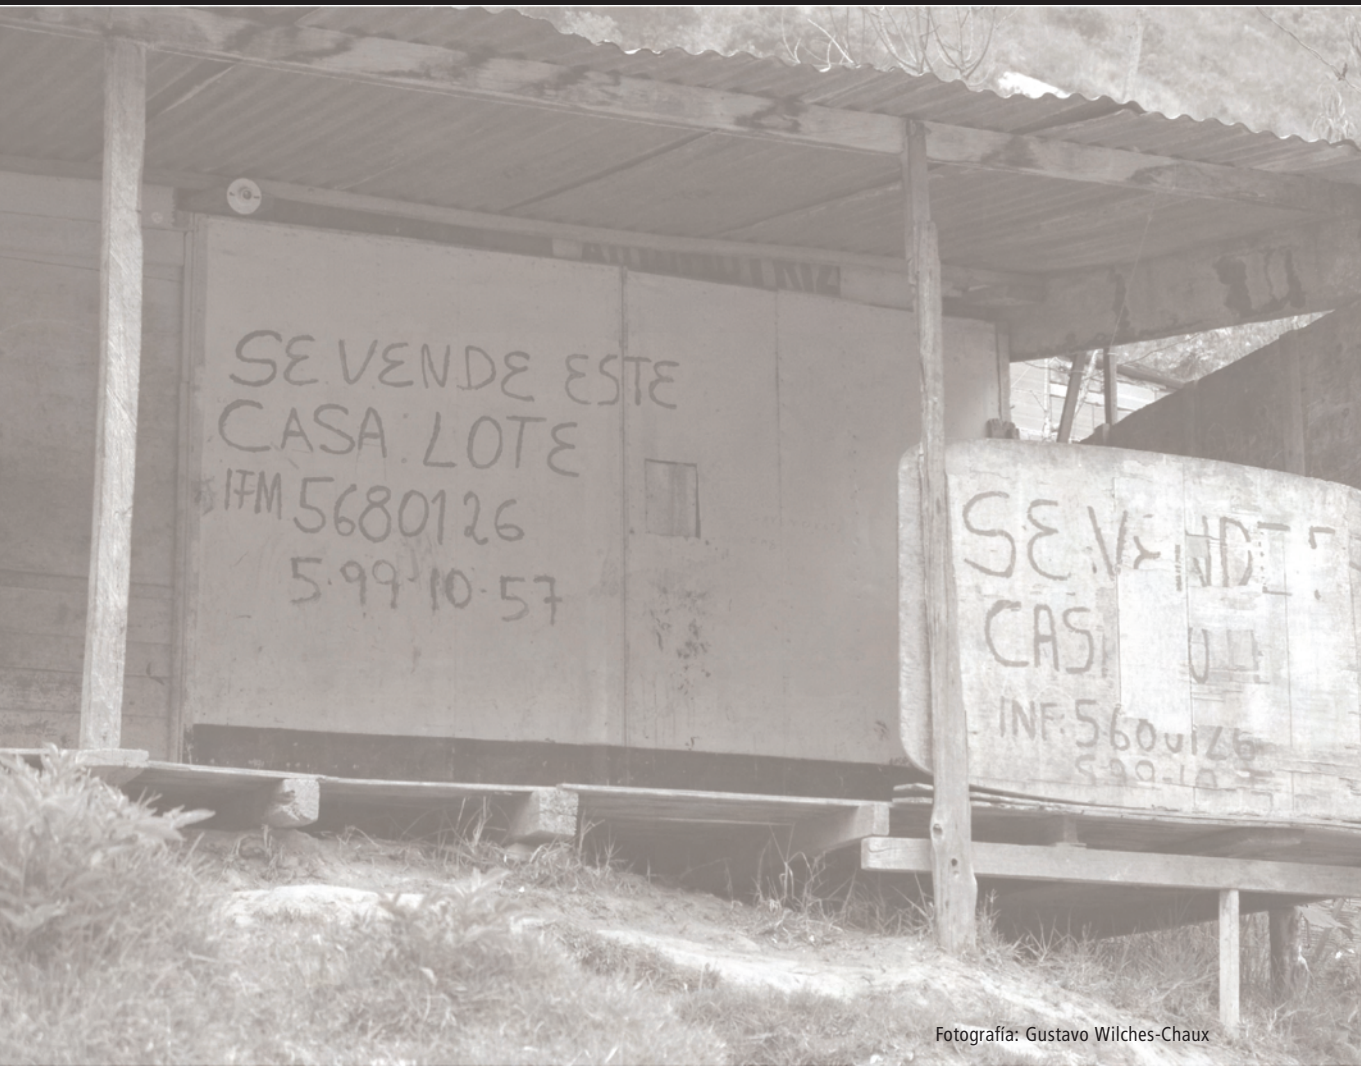 SE VENDE ESTE
CASA LOTE
IFM 5680126
5·99·10·57
SE
CAS
INF.
Fotografía: Gustavo Wilches-Chaux